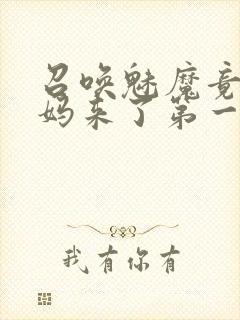 召唤魅魔竟
妈来了第一
我有你有